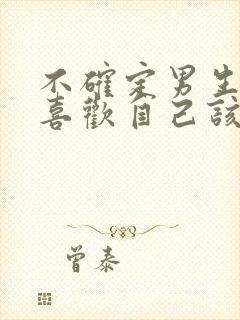 不確定男生
喜歡自己該
曾泰